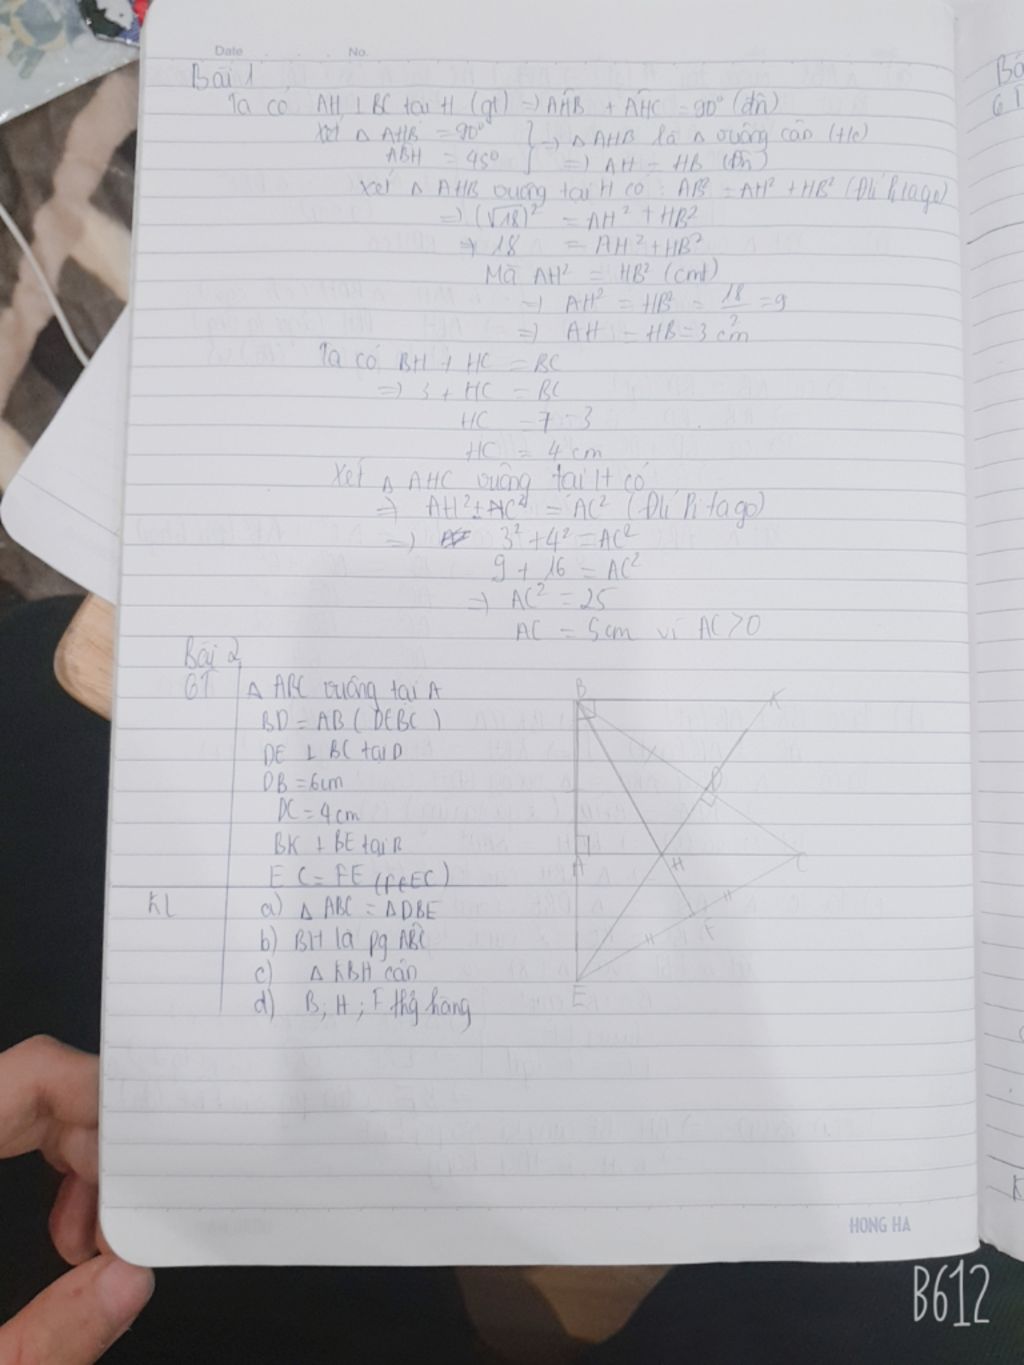 Date No.
Bài 1
Ta có AH ⊥ BC tại H (gt) => AHB + AHC = 90° (đn)
Xét △ AHB = 90° } => △ AHB là △ vuông cân
ABH = 45° } => AH = HB (đn)
Xét △ AHB vuông tại H có: AB² = AH² + HB² (Đlí Pitago)
=> (√18)² = AH² + HB²
=> 18 = AH² + HB²
Mà AH² = HB² (cmt)
=> AH² = HB² = 18/2 = 9
=> AH = HB = 3 cm
Ta có BH + HC = BC
=> 3 + HC = BC
HC = 7 - 3
HC = 4 cm
Xét △ AHC vuông tại H có
=> AH² + AC² = AC² (Đlí Pitago)
=> 3² + 4² = AC²
9 + 16 = AC²
=> AC² = 25
AC = 5cm vì AC > 0
Bài 2
GT △ ABC vuông tại A
BD = AB (D∈BC)
DE ⊥ BC tại D
DB = 6cm
DC = 4cm
BK ⊥ BE tại B
EC = FE (F∈EC)
KL a) △ ABC = △DBE
b) BH là pg ABC
c) △ KBH cân
d) B; H; F thẳg hàng
B K
D
A H C
F
E
HONG HA
B612
Bà
GT